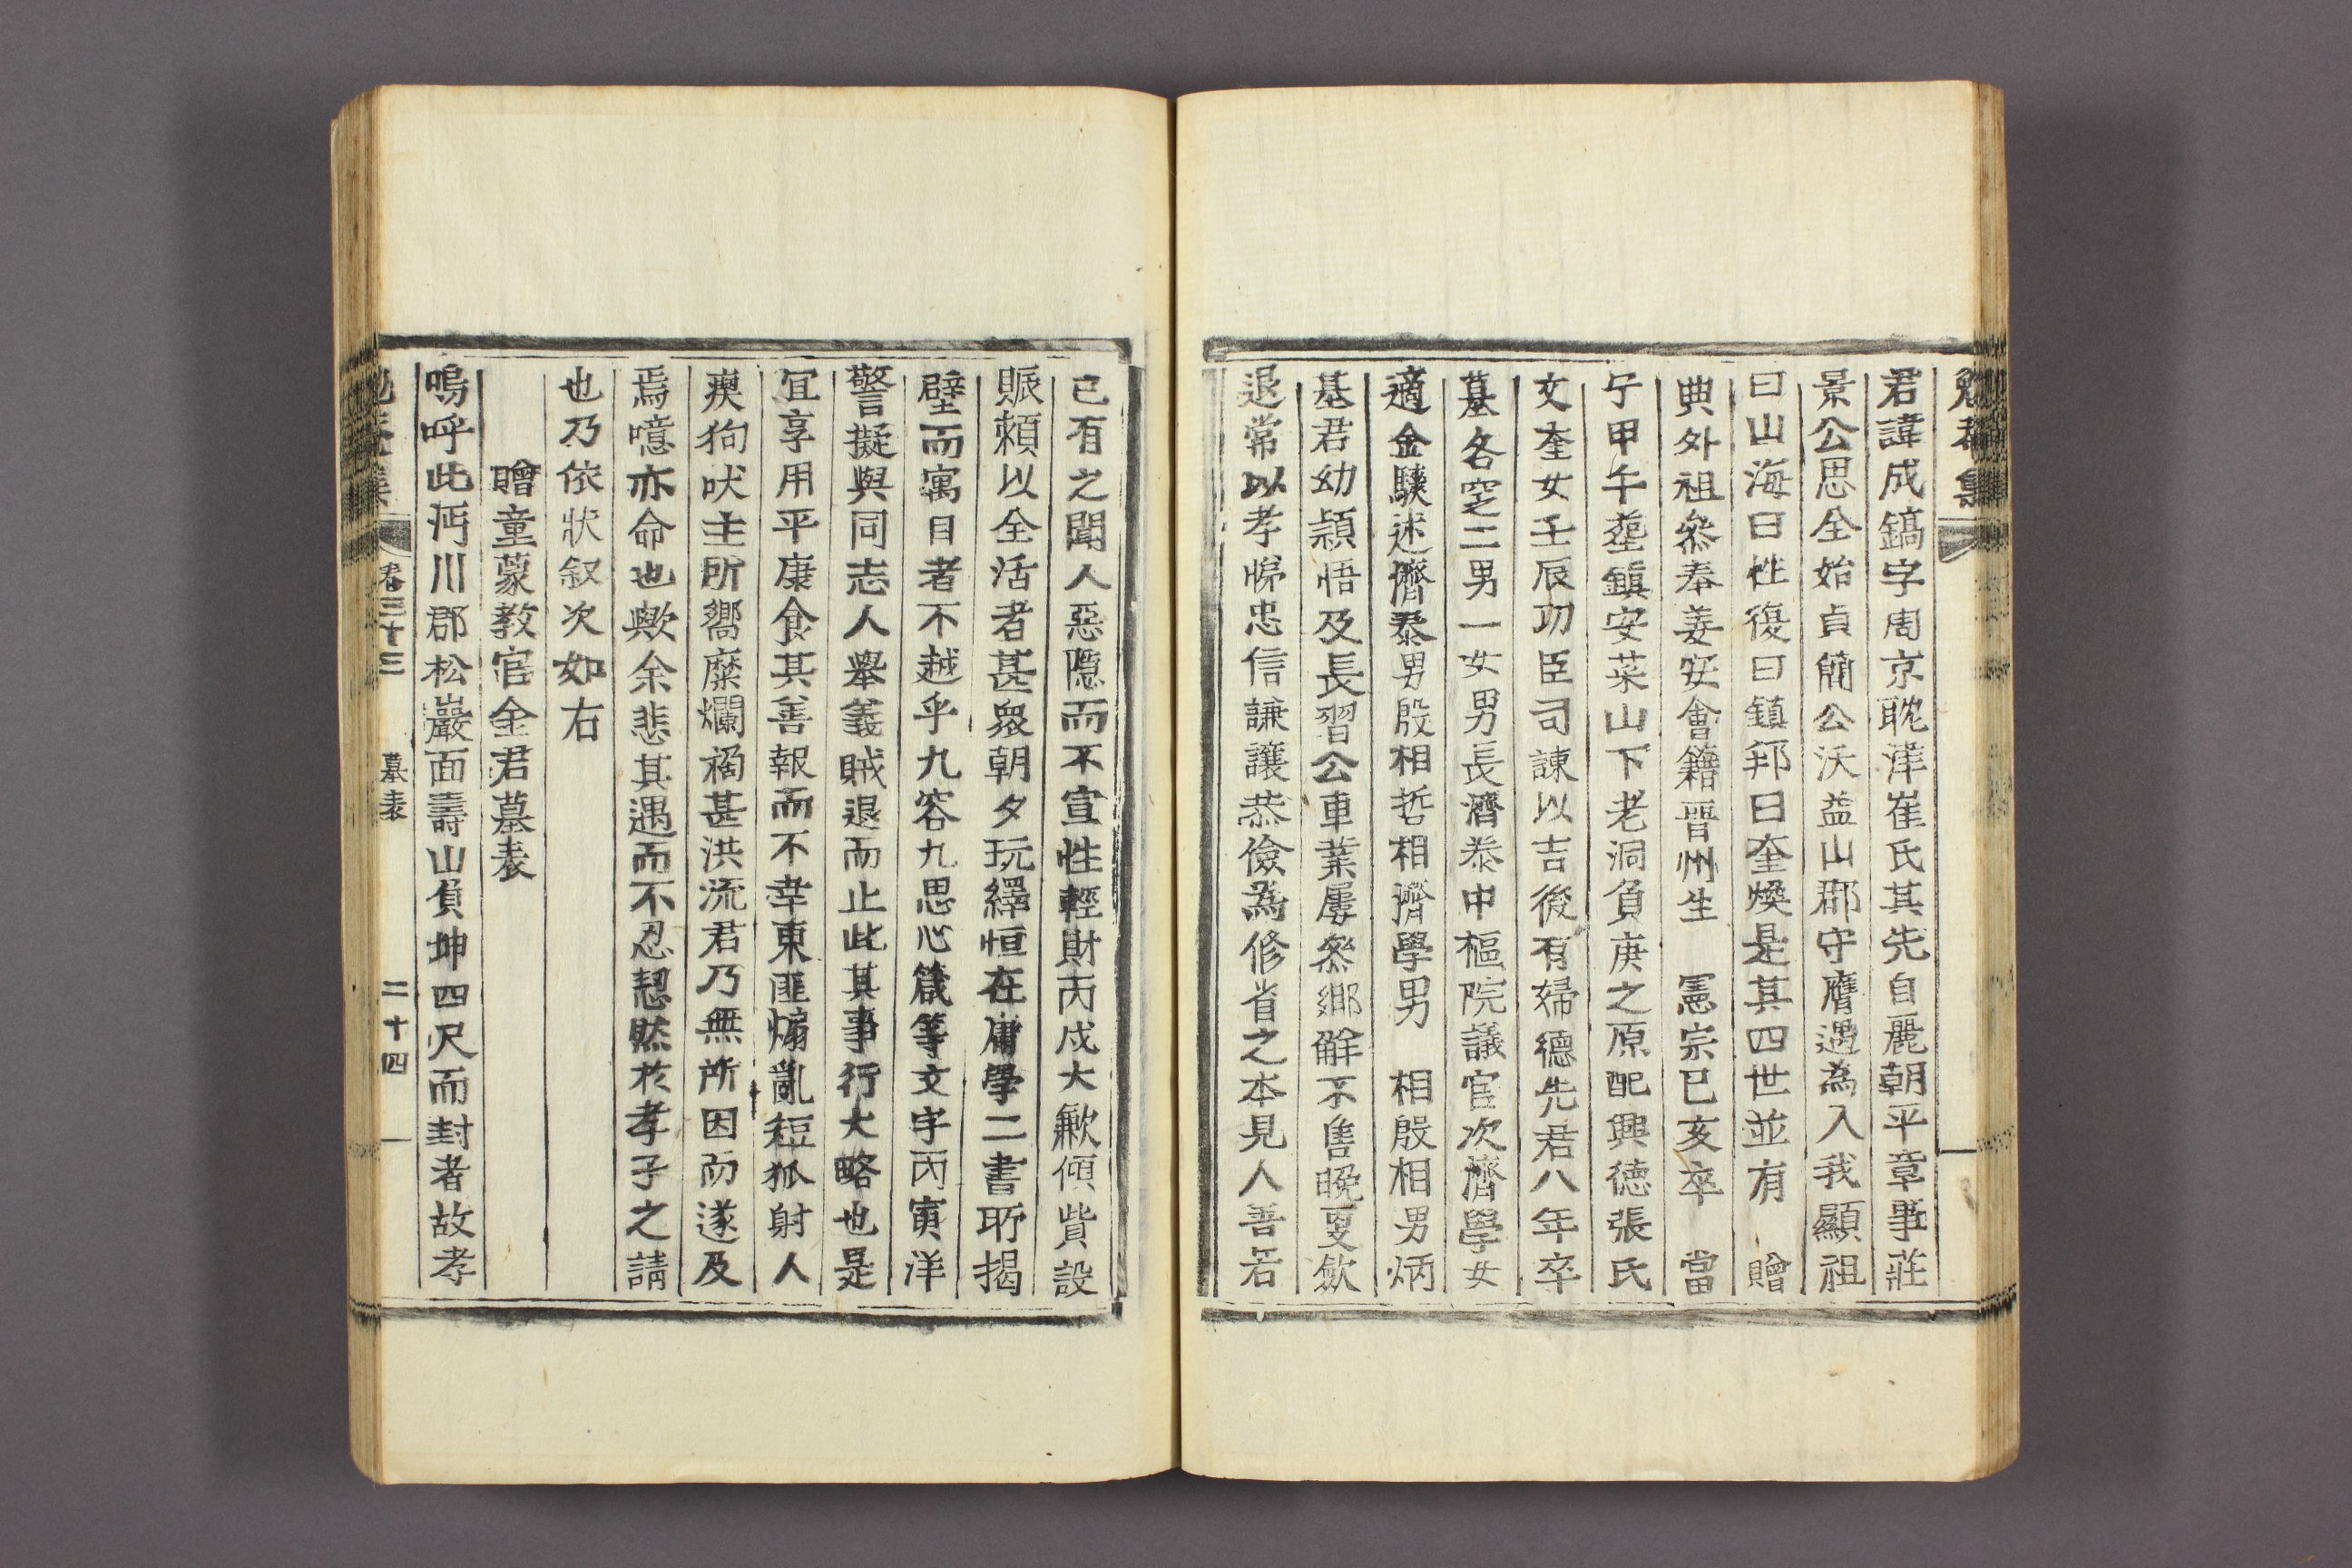 君諱成鎬字周京耽津崔氏其先自麗朝平章事莊
景公思全始貞簡公沃益山郡守膺遇為入我顯祖
曰山海曰性復曰鎮邦曰奎煥是其四世並有 贈
典外祖參奉姜安會籍晋州生 憲宗已亥卒 當
宁甲午塟鎮安菜山下老洞負庚之原配興德張氏
文奎女壬辰功臣司諫以吉後有婦德先君八年卒
墓各窆二男一女男長濟泰中樞院議官次濟學女
適金騻述濟泰男殷相哲相濟學男 相殷相男炳
基君幼頴悟及長習公車業屢參鄉解不售晩更歛
退常以孝悌忠信謙讓恭儉為修省之本見人善若
已有之聞人惡隱而不宣性輕財丙戌大歉傾貲設
賑頼以全活者甚衆朝夕玩繹恒在庸學二書所揭
壁而寓目者不越乎九容九思心箴等文字丙寅洋
警擬與同志人舉義賊退而止此其事行大略也是
宜享用平康食其善報而不幸東匪煽亂短狐射人
瘈狗吠主所嚮糜爛禍甚洪流君乃無所因而遂及
焉噫亦命也歟余悲其遇而不忍恝然於孝子之請
也乃依狀叙次如右
贈童蒙教官金君墓表
嗚呼此沔川郡松巖面壽山負坤四尺而封者故孝
卷三十三 墓表 二十四